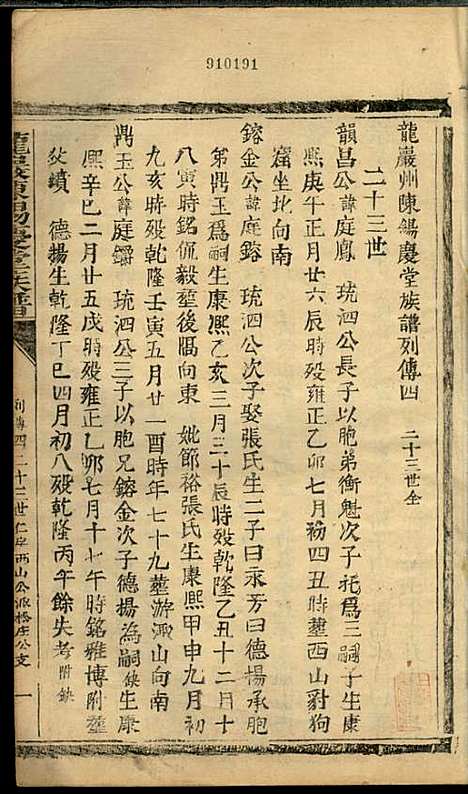 910191
龍巖州陳錫慶堂族譜列傳四 二十三世全
二十三世
韻昌公諱庭鳳 琉泗公長子以胞弟衡魁次子托為三嗣子生康
熙庚午正月廿六辰時殁雍正乙卯七月初四丑時塟西山豺狗
窟坐北向南
鎔金公諱庭鎔 琉泗公次子娶張氏生二子曰永芳曰德揚承胞
弟鼎玉為嗣生康熙乙亥三月三十辰時殁乾隆乙丑十二月十
八寅時銘侃毅塟後隔向東 妣節裕張氏生康熙甲申九月初
九亥時殁乾隆壬寅五月廿一酉時年七十九塟游諏山向南
鼎玉公諱庭鑈 琉泗公三子以胞兄鎔金次子德揚為嗣缺生康
熙辛巳二月廿五戌時殁雍正乙卯七月十七午時銘雅博附塟
父墳 德揚生乾隆丁巳四月初八殁乾隆丙午餘失考附缺
龍巖陳錫慶堂族譜
列傳四 二十三世仁岸西山公派橋庄公支 一